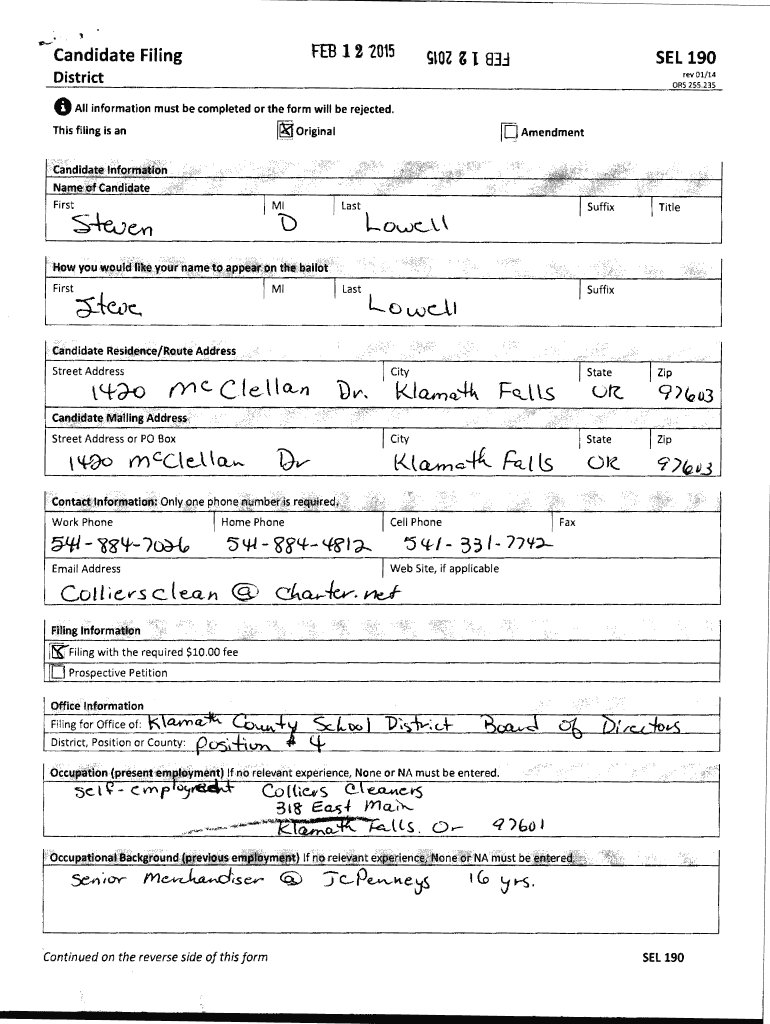 Candidate Filing
FEB 12 2015
FEB 12 2015
SEL 190
District
rev 01/14
ORS 255.235
All information must be completed or the form will be rejected.
This filing is an
Original
Amendment
Candidate Information
Name of Candidate
First MI Last Suffix Title
Steven D Lowell
How you would like your name to appear on the ballot
First MI Last Suffix
Steve Lowell
Candidate Residence/Route Address
Street Address City State Zip
1420 McClellan Dr. Klamath Falls OR 97603
Candidate Mailing Address
Street Address or PO Box City State Zip
1420 McClellan Dr Klamath Falls OR 97603
Contact Information: Only one phone number is required.
Work Phone Home Phone Cell Phone Fax
541-884-7026 541-884-4812 541-331-7742
Email Address Web Site, if applicable
Colliersclean @ charter.net
Filing Information
Filing with the required $10.00 fee
Prospective Petition
Office Information
Filing for Office of: Klamath County School District Board of Directors
District, Position or County: Position # 4
Occupation (present employment) If no relevant experience, None or NA must be entered.
Colliers Cleaners
318 East Main
Klamath Falls. Or 97601
Occupational Background (previous employment) If no relevant experience, None or NA must be entered.
Senior Merchandiser @ JCPenneys 16 yrs.
Continued on the reverse side of this form
SEL 190